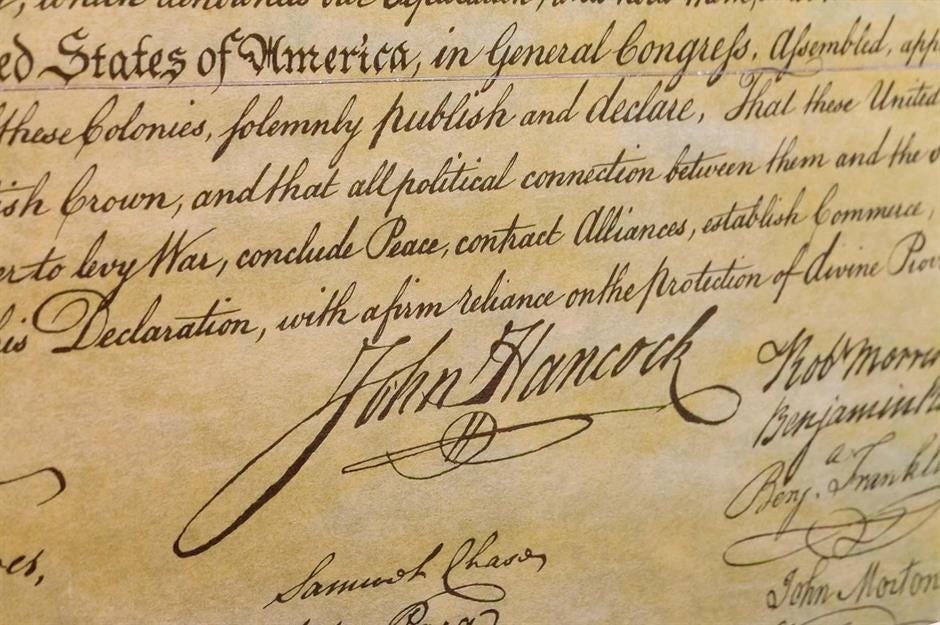 which denounces our Separation, and hold them,
ed States of America, in General Congreſs, Aſsembled, app
these Colonies, solemnly publish and declare, That these United
ish Crown, and that all political connection between them and the
er to levy War, conclude Peace, contract Alliances, establish Commerce,
his Declaration, with a firm reliance on the protection of divine Prov
John Hancock
Robt Morris
Benjamin R
Benja. Frankl
Samuel Chase
John Morton
Paca